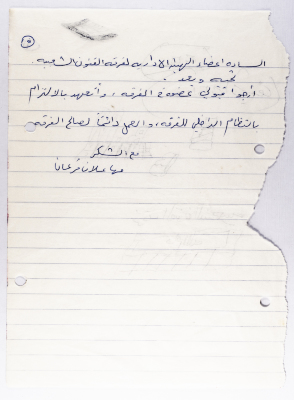 ٥
السادة اعضاء الهيئة الادارية لفرقة الفنون الشعبية
تحية وبعد
أرجوا قبولي عضوه في الفرقه، واتعهد بالالتزام
بالنظام الداخلي للفرقه، والعمل دائماً لصالح الفرقه
مع الشكر